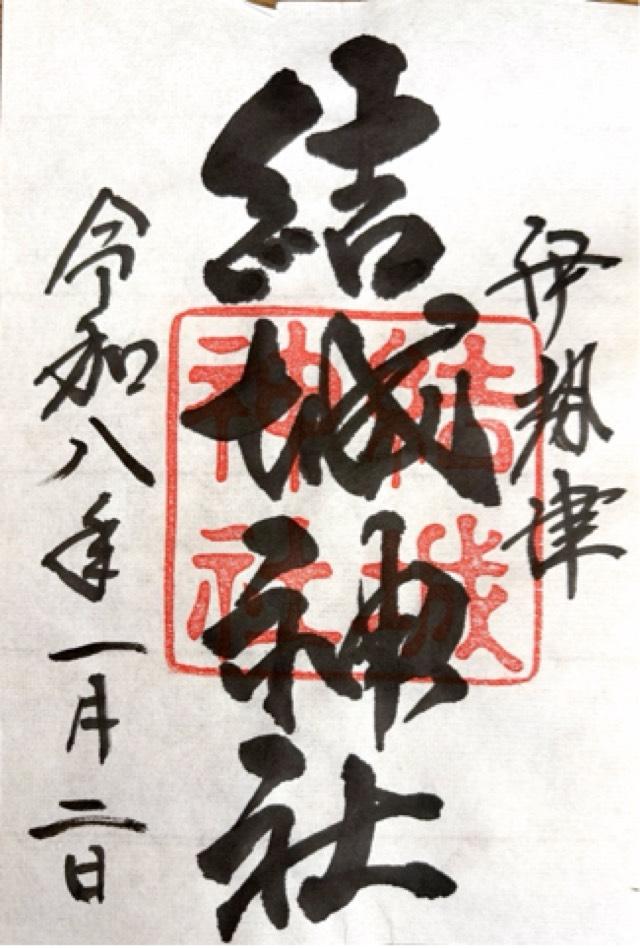 伊勢津
結城神社
結城
神社
令和八年一月二日